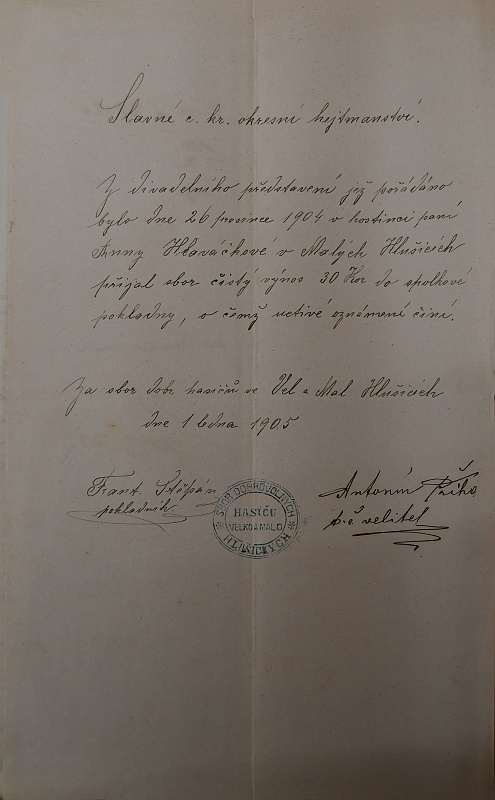 Slavné c. kr. okresní hejtmanství.
Z divadelního představení jež pořádáno
bylo dne 26 prosince 1904 v hostinci paní
Anny Hlaváčkové v Malých Hlušicích
přijal sbor čistý výnos 30 Kor do spolkové
pokladny, o čemž uctivé oznámení činí.
Za sbor dobr hasičů ve Vel a Mal Hlušicích
dne 1 ledna 1905
Frant. Štěpán
pokladník
SBOR DOBROVOLNÝCH
HASIČŮ
VELKO A MALO
HLUŠICKÝCH
Antonín
velitel